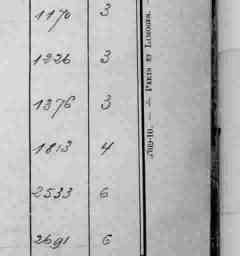 1170 3
1226 3
1376 3
1813 4
2533 6
2691 6
PARIS ET LIMOGES.